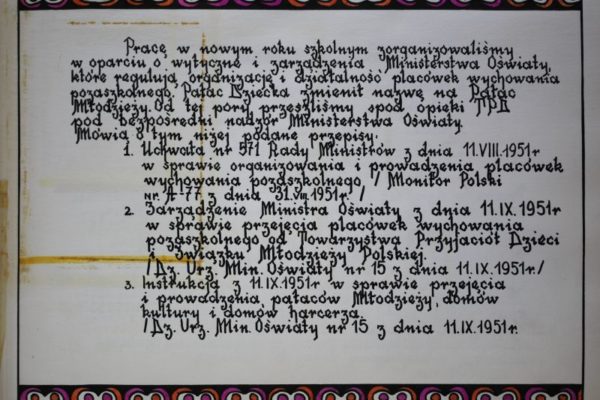 Pracę w nowym roku szkolnym zorganizowaliśmy
w oparciu o wytyczne i zarządzenia Ministerstwa Oświaty,
które regulują organizację i działalność placówek wychowania
pozaszkolnego. Pałac Dziecka zmienił nazwę na Pałac
Młodzieży. Od tej pory przeszliśmy spod opieki TPD
pod bezpośredni nadzór Ministerstwa Oświaty.
Mówią o tym niżej podane przepisy:
1. Uchwała nr 571 Rady Ministrów z dnia 11.VIII.1951r
w sprawie organizowania i prowadzenia placówek
wychowania pozaszkolnego, / Monitor Polski
nr. A-77 z dnia 31.VIII.1951r. /
2. Zarządzenie Ministra Oświaty z dnia 11.IX.1951r
w sprawie przejęcia placówek wychowania
pozaszkolnego od Towarzystwa Przyjaciół Dzieci
i Związku Młodzieży Polskiej.
/Dz. Urz. Min. Oświaty nr 15 z dnia 11.IX.1951r/
3. Instrukcja z 11.IX.1951r w sprawie przejęcia
i prowadzenia pałaców Młodzieży, domów
kultury i domów harcerza.
/Dz. Urz. Min. Oświaty nr 15 z dnia 11.IX.1951r.